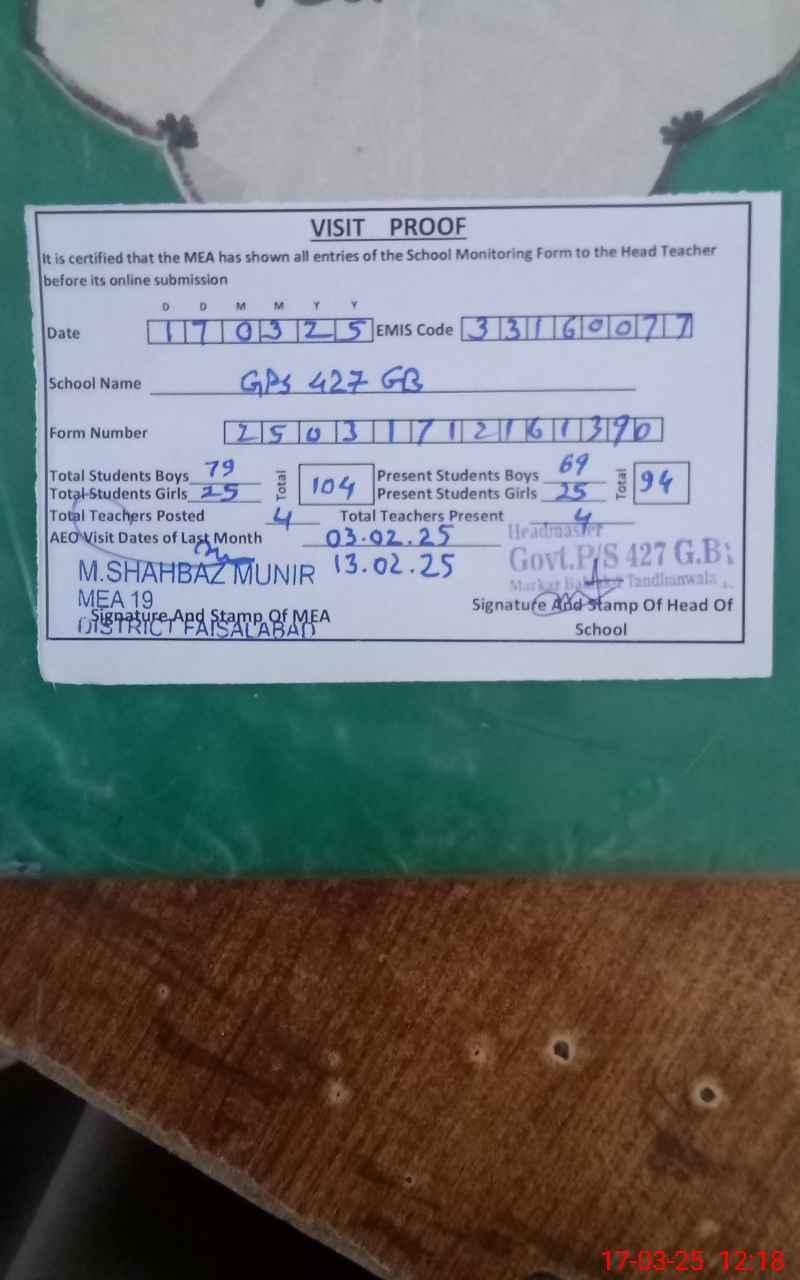 VISIT PROOF
It is certified that the MEA has shown all entries of the School Monitoring Form to the Head Teacher
before its online submission
D D M M Y Y
Date 1 7 0 3 2 5 EMIS Code 3 3 1 6 0 0 7 7
School Name GPS 427 GB
Form Number 2 5 0 3 1 7 1 2 1 6 1 3 9 0
Total Students Boys 79 Total 104 Present Students Boys 69 Total 94
Total Students Girls 25 Present Students Girls 25
Total Teachers Posted 4 Total Teachers Present 4
AEO Visit Dates of Last Month 03.02.25
13.02.25
Headmaster
Govt.P/S 427 G.B
Tandlianwala
M.SHAHBAZ MUNIR
MEA 19
DISTRICT FAISALABAD
Signature And Stamp Of MEA
Signature And Stamp Of Head Of
School
17-03-25 12:18